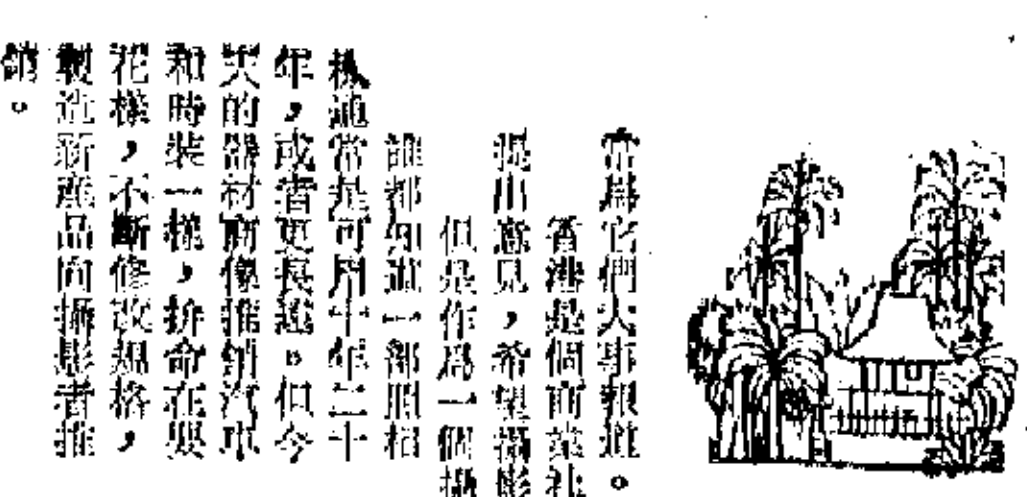 當爲它們大事報道。
香港是個商業社
提出意見，希望攝影
但是作爲一個攝
誰都知道一部照相
機通常是可用十年二十
年，或者更長遠。但今
天的器材商像推銷汽車
和時裝一樣，拚命在耍
花樣，不斷修改規格，
製造新產品向攝影者推
銷。